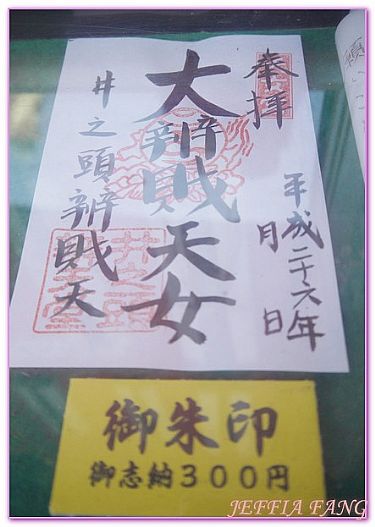 奉拝
平成二十六年
月 日
大辨財天女
井之頭辨財天
御朱印
御志納300円
JEFFIA FANG